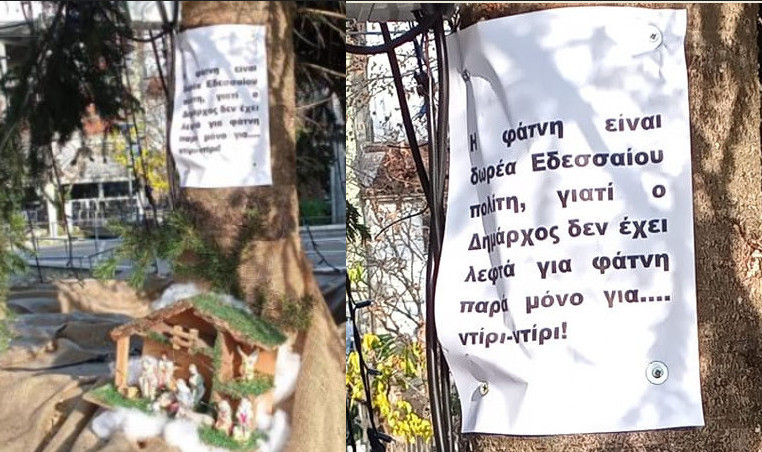 φάτνη είναι
δωρέα Εδεσσαίου
πολίτη, γιατί ο
Δήμαρχος δεν έχει
λεφτά για φάτνη
παρά μόνο για....
ντίρι-ντίρι!
Η φάτνη είναι
δωρέα Εδεσσαίου
πολίτη, γιατί ο
Δημάρχος δεν έχει
λεφτά για φάτνη
παρά μόνο για....
ντίρι-ντίρι!